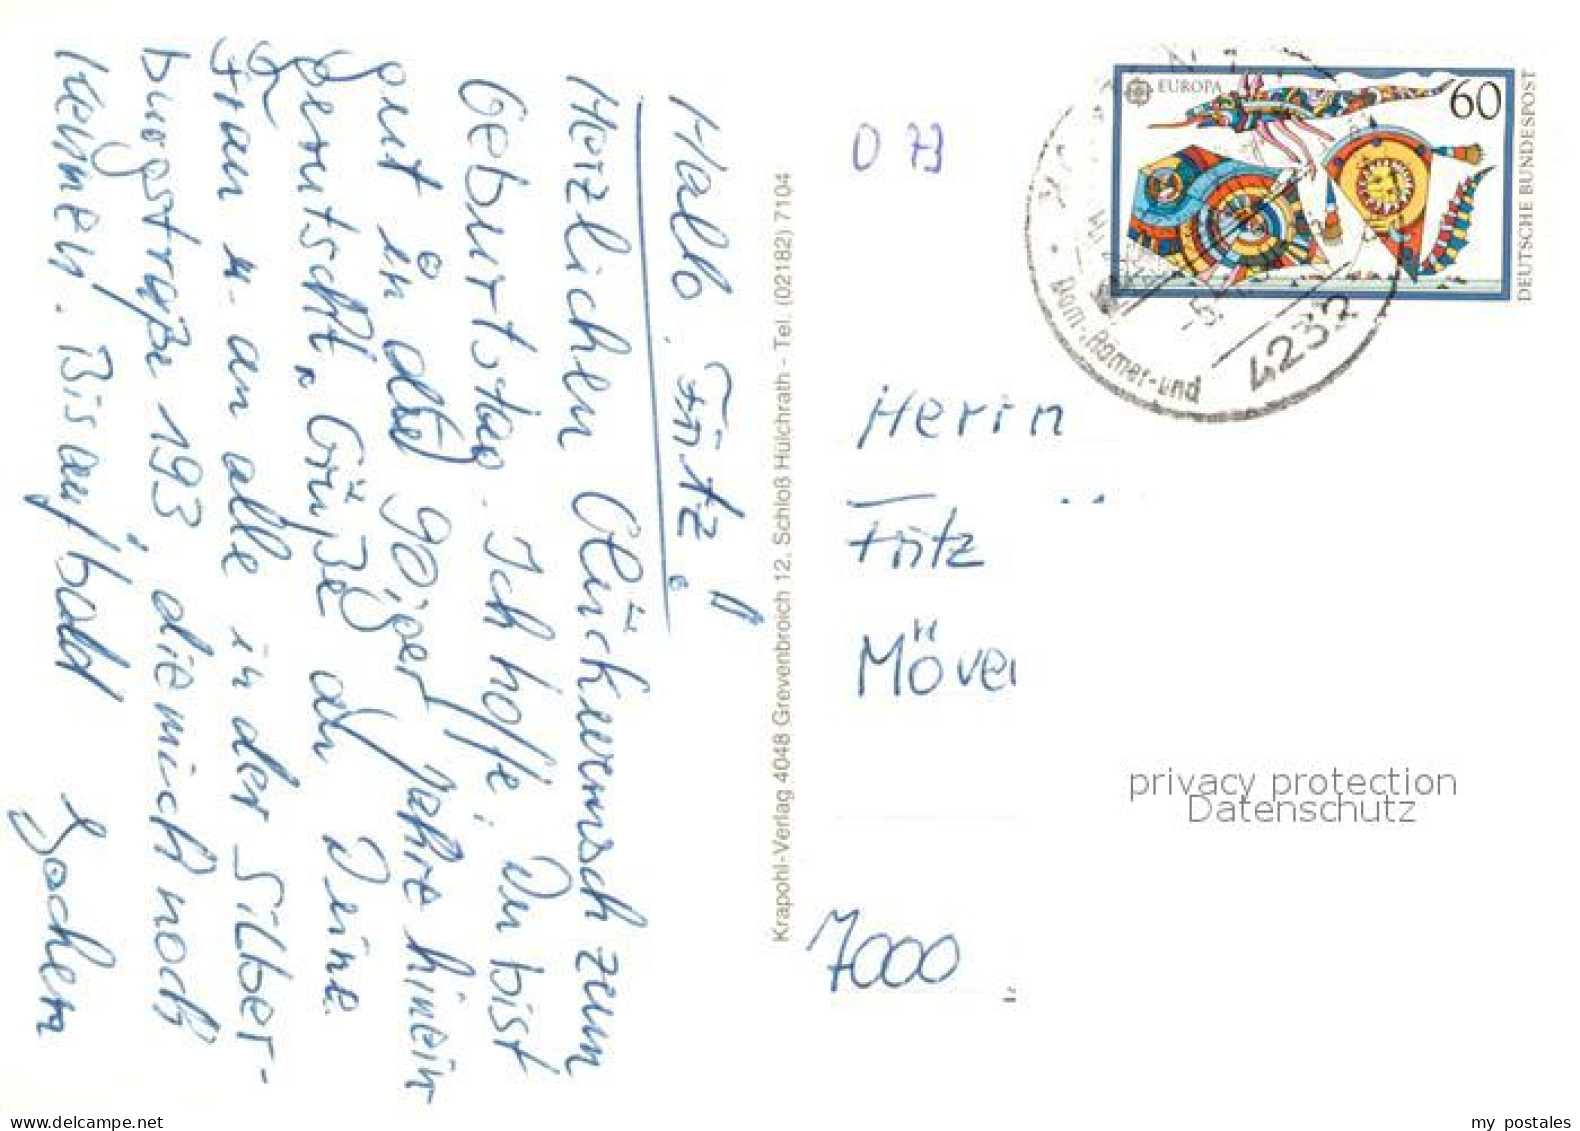 Hallo Fritz!
Herzlichen Glückwunsch zum
Geburtstag. Ich hoffe, Du bist
gut in die 90iger Jahre hinein
gerutscht. Grüße an Deine
Frau u. an alle in der Silber-
burgstraße 193, die mich noch
kennen. Bis auf bald
Jochen
Krapohl-Verlag 4048 Grevenbroich 12, Schloß Hülchrath - Tel. (02182) 7104
EUROPA
60
DEUTSCHE BUNDESPOST
Dom-, Römer- und
4232
Herrn
Fritz
Möve
7000
privacy protection
Datenschutz
www.delcampe.net
my postales